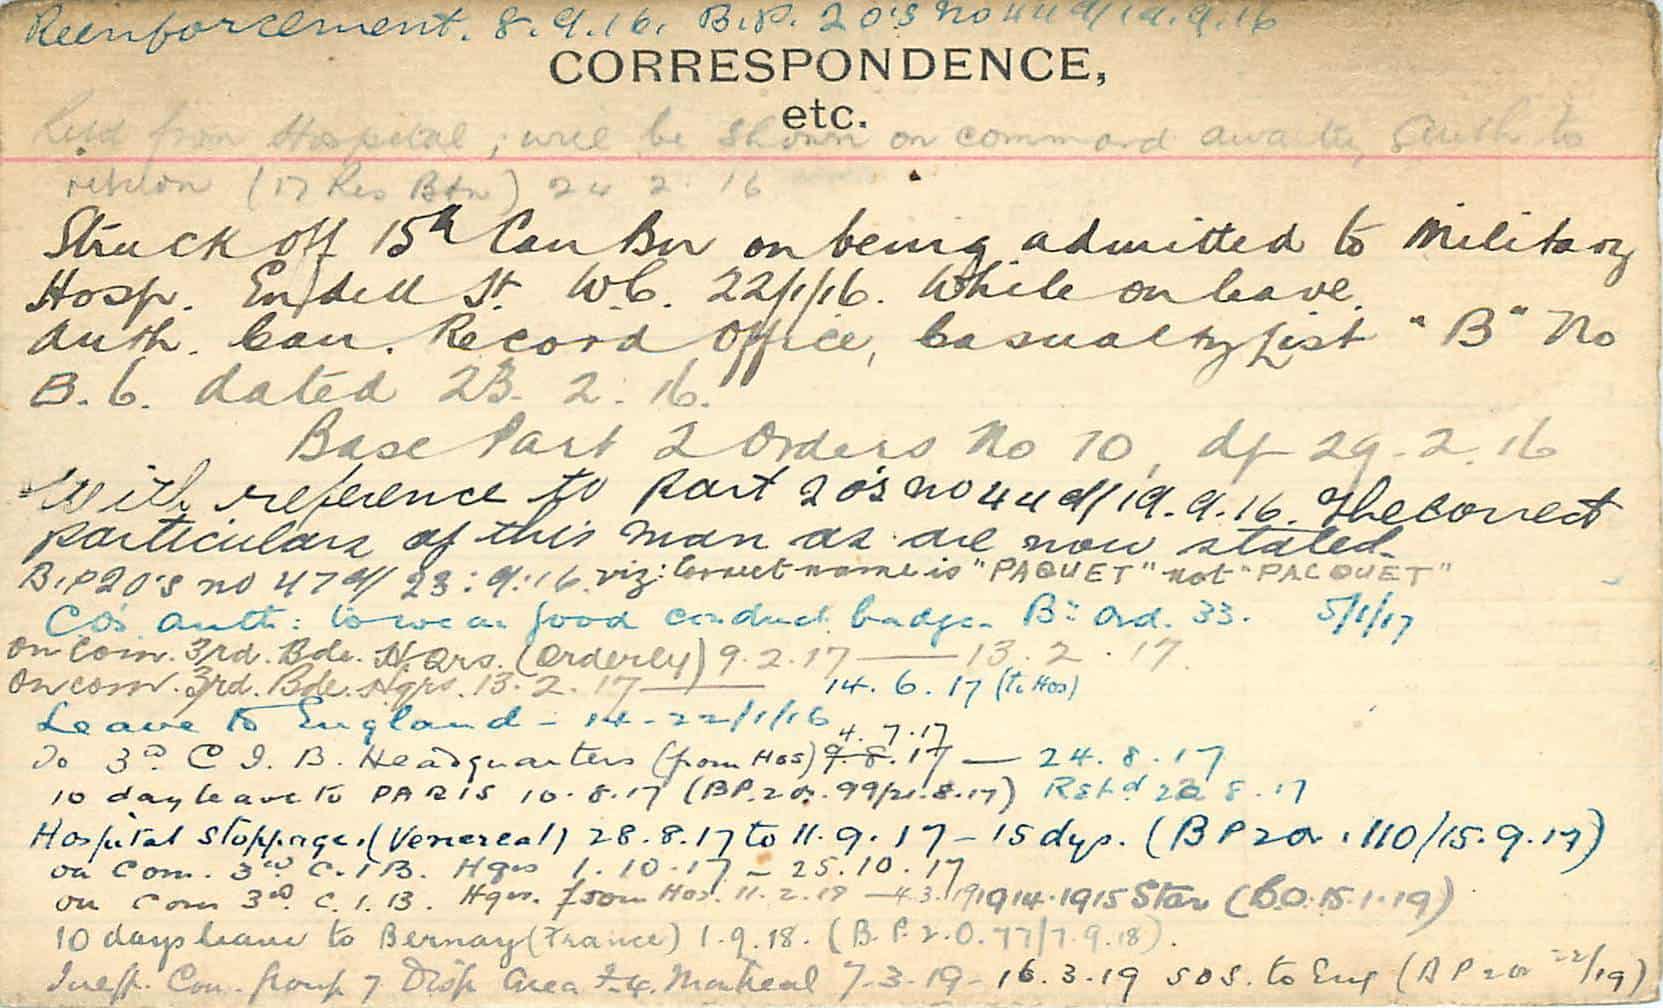 Reinforcement. 8.9.16. B.P. 2 O's No 44 d/19.9.16
CORRESPONDENCE,
etc.
Retd from Hospital, will be shown on command awaitg Auth to
return (17 Res Btn) 24 2 16
Struck off 15th Can Bn on being admitted to Military
Hosp. Endell St WC. 22/1/16. While on leave.
Auth. Can. Record Office, Casualty List "B" No
B.6. dated 23.2.16.
Base Part 2 Orders No 10, d/ 29.2.16
With reference to Part 2 O's No 44 d/19.9.16. The correct
particulars of this man as are now stated.
B.P 2 O's no 47 d/ 23:9:16. viz: Correct name is "PAQUET" not "PACQUET"
CO's auth: to wear good conduct badge. Bn Ord. 33. 5/1/17
On Com. 3rd. Bde. H.Qrs. (Orderly) 9.2.17 — 13.2.17.
On com. 3rd. Bde. Hqrs. 13.2.17 — 14.6.17 (to Hos)
Leave to England - 14-22/1/16
4.7.17
To 3rd C.I.B. Headquarters (from Hos) 9.8.17 — 24.8.17
10 day leave to PARIS 10.8.17 (BP.2 Or. 99/21.8.17) Retd 22 8.17
Hospital Stoppage, (Venereal) 28.8.17 to 11.9.17 - 15 dys. (B P 2 Or. 110/15.9.17)
on Com. 3rd C.I.B. Hqrs 1.10.17 - 25.10.17
on Com 3rd. C.I.B. Hqrs. from Hos. 11.2.18 - 4.3.19 1914-1915 Star (B.O.15.1.19)
10 days leave to Bernay (France) 1.9.18. (B.P.2.O.77/7.9.18).
Ineff. Con. Group 7 Disp Area Montreal 7-3-19- 16.3.19 SOS. to Eng (B P 2 Or 22/19)